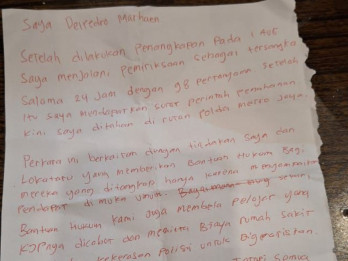 Saya Delpedro Marhaen
Setelah dilakukan Penangkapan Pada 1 Sep
Saya menjalani Pemeriksaan sebagai tersangka
Selama 24 Jam dengan 98 pertanyaan setelah
itu saya mendapatkan surat perintah penahanan
Kini saya ditahan di rutan Polda Metro Jaya.
Perkara ini berkaitan dengan tindakan saya dan
Lokataru yang memberikan Bantuan Hukum Bagi
mereka yang ditangkap hanya karena menyampaikan
Pendapat di muka umum.
Bantuan Hukum kami juga membela pelajar yang
KJPnya dicabut dan meminta Biaya rumah sakit
kekerasan polisi untuk Digratiskan.
Tetapi semua